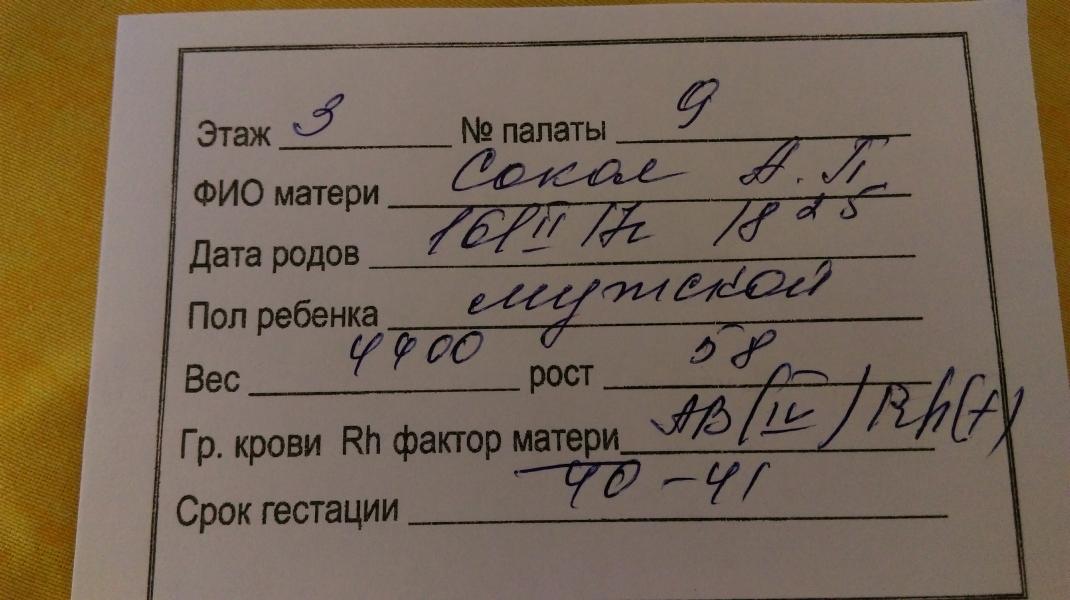 Этаж 3 № палаты 9
ФИО матери Сокол А. П
Дата родов 16/II 17г 18 25
Пол ребенка мужской
Вес 4400 рост 58
Гр. крови Rh фактор матери AB (IV) Rh(+)
Срок гестации 40 - 41